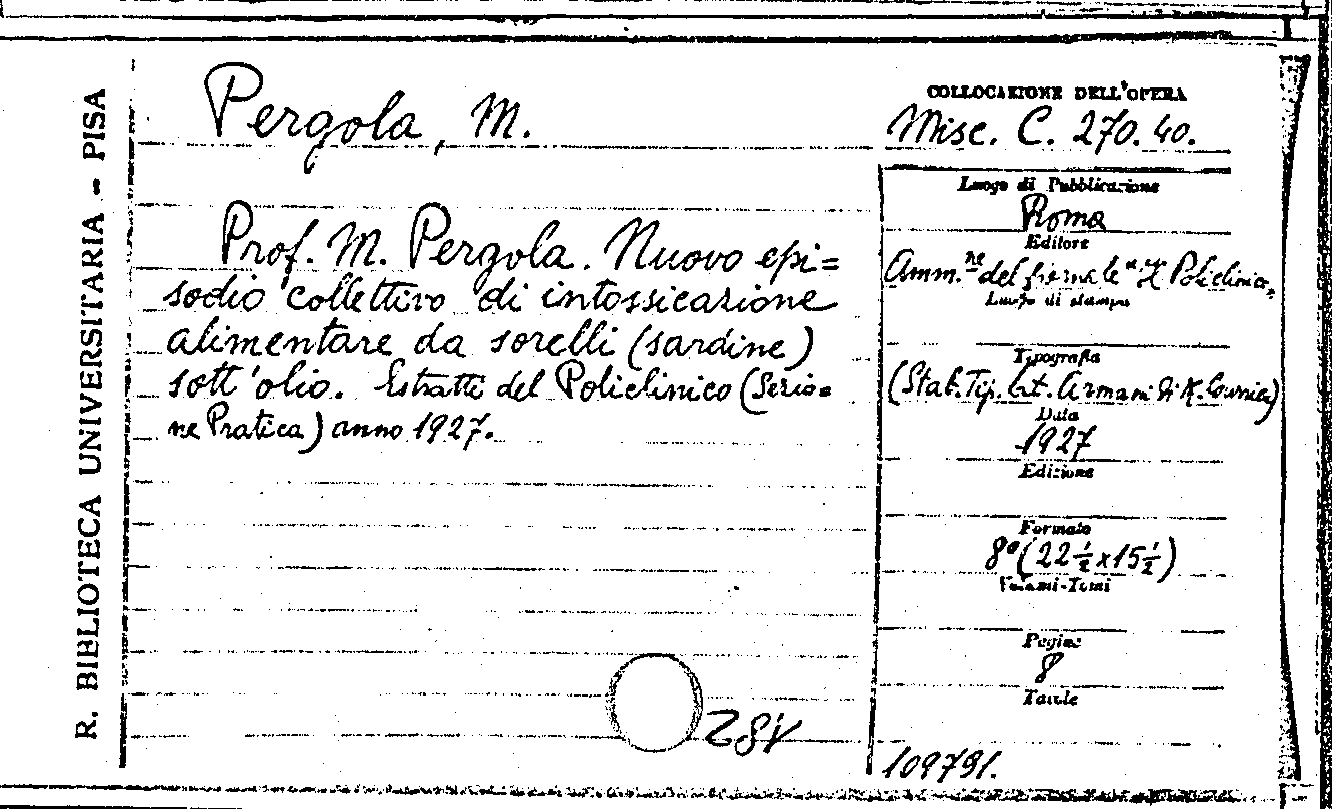 R. BIBLIOTECA UNIVERSITARIA - PISA
Pergola, M.
Prof. M. Pergola. Nuovo epi=
sodio collettivo di intossicazione
alimentare da sorelli (sardine)
sott'olio. Estratti del Policlinico (Sezio=
ne Pratica) anno 1927.
COLLOCAZIONE DELL'OPERA
Misc. C. 270.40.
Luogo di Pubblicazione
Roma
Editore
Amm.ne del giornale "Il Policlinico"
Luogo di stampa
Tipografia
(Stab. Tip. Armani di
Data
1927
Edizione
Formato
8º (22 1/2 x 15 1/2)
Volumi-Tomi
Pagine
8
Tavole
109791.